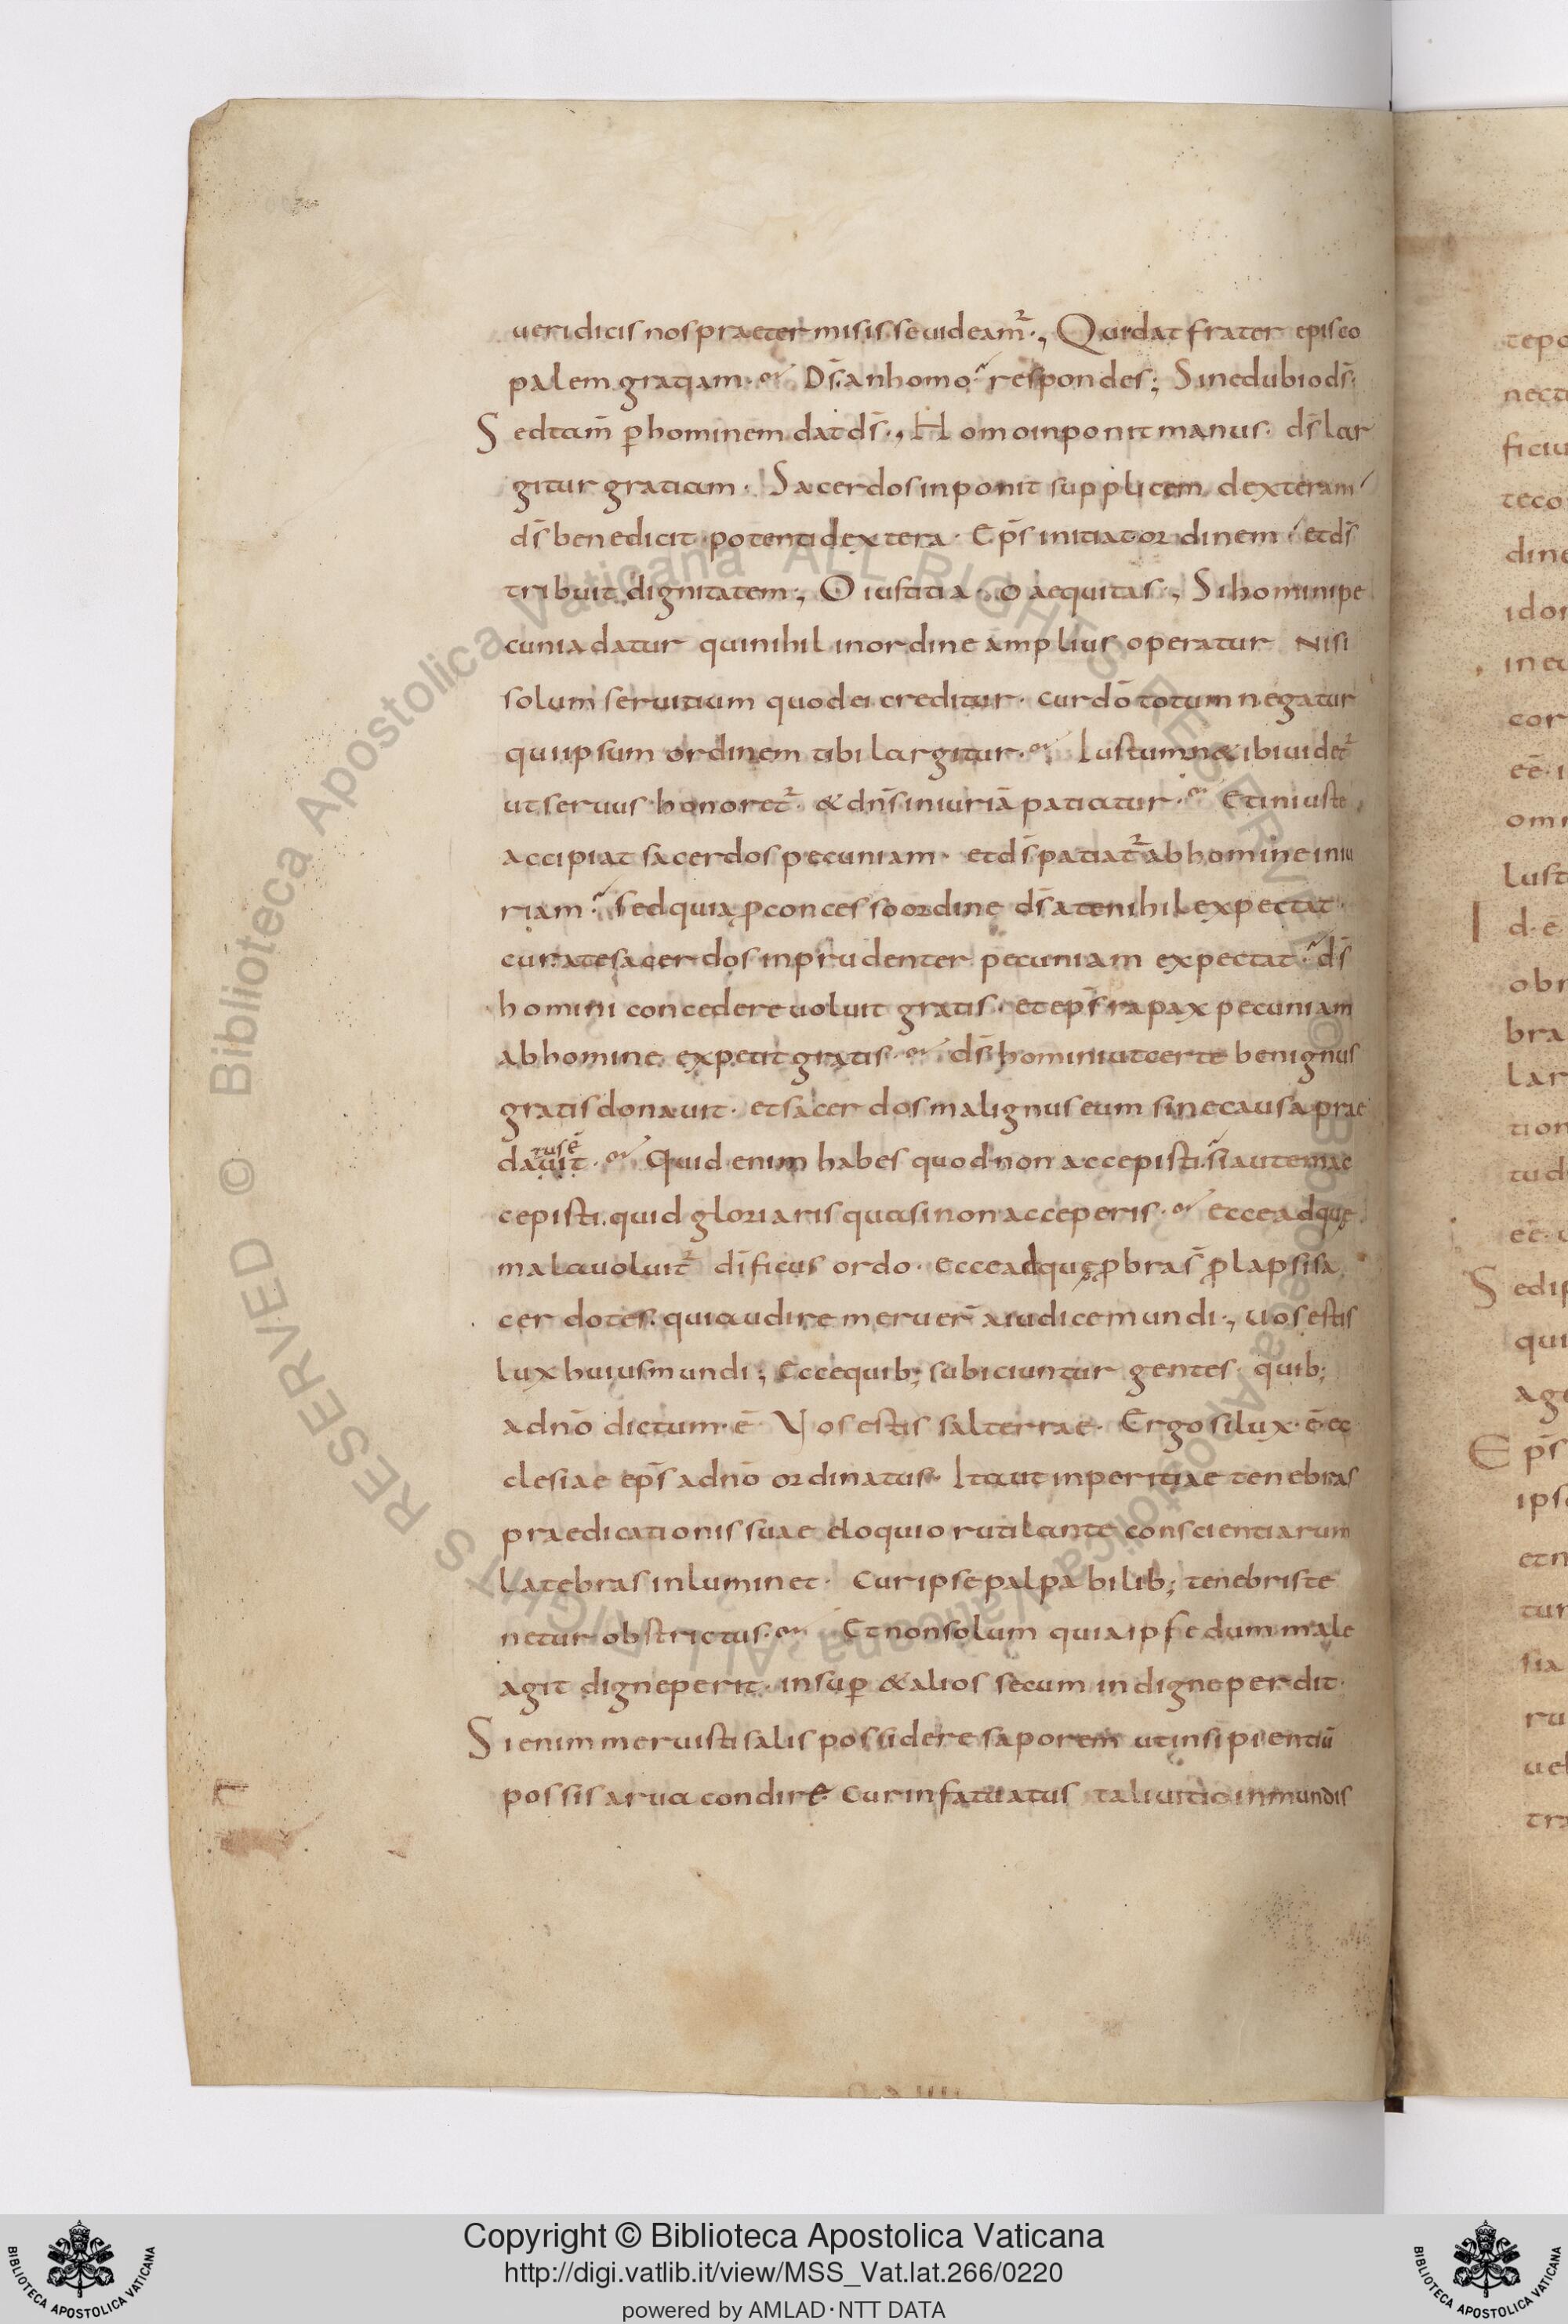 ueridicis nos praetermisisse uideam̄²., Qui dat frater episco
palem gratiam· Ds̄ an homo respondes; Sine dubio ds̄·
Sed tam̄ ꝑ hominem dat ds̄., Homo inponit manus· ds̄ lar
gitur gratiam· Sacerdos inponit supplicem dexteram
ds̄ benedicit potenti dextera· Ep̄s initiat ordinem et ds̄
tribuit dignitatem., O iustitia· o aequitas., Si homini pe
cunia datur qui nihil in ordine amplius operatur nisi
solum seruitium quod ei creditur· cur dō totum negatur
qui ipsum ordinem tibi largitur· Iustumn& ibi uidet²
ut seruus honoret²· & dn̄s iniuriā patiatur· Et iniuste
accipiat sacerdos pecuniam· et ds̄ patiat² ab homine iniu
riam· sed quia ꝓ concesso ordine ds̄ a te nihil expectat·
cur a te sacerdos inprudenter pecuniam expectat· ds̄
homini concedere uoluit gratis· et ep̄s rapax pecuniam
ab homine expetit gratis· ds̄ homini ut certe benignus
gratis donauit· et sacerdos malignus eum sine causa prae
dauit· Quid enim habes quod non accepisti· si autem ac
rus ē
cepisti· quid gloriaris quasi non acceperis· ecce ad quę
mala uoluit² dīficus ordo· ecce ad quę ꝓbras̄ ꝓlapsi sa
cerdotes· qui audire meruer̄ a iudice mundi., uos estis
lux huius mundi; Ecce quib; subiciuntur gentes· quib;
a dn̄o dictum·ē· Vos estis sal terrae· Ergo si lux·ē ec
clesiae ep̄s a dn̄o ordinatus· Ita ut inperitiae tenebras
praedicationis suae eloquio rutilante conscientiarum
latebras inluminet· Cur ipse palpabilib; tenebris te
netur obstrictus· Et non solum quia ipse dum male
agit digne perit· insuꝑ & alios secum indigne perdit·
Si enim meruisti salis possidere saporem ut insipientiū
possis arua condire· Cur infatuatus tali uitio inmundis
Copyright © Biblioteca Apostolica Vaticana
http://digi.vatlib.it/view/MSS_Vat.lat.266/0220
powered by AMLAD·NTT DATA